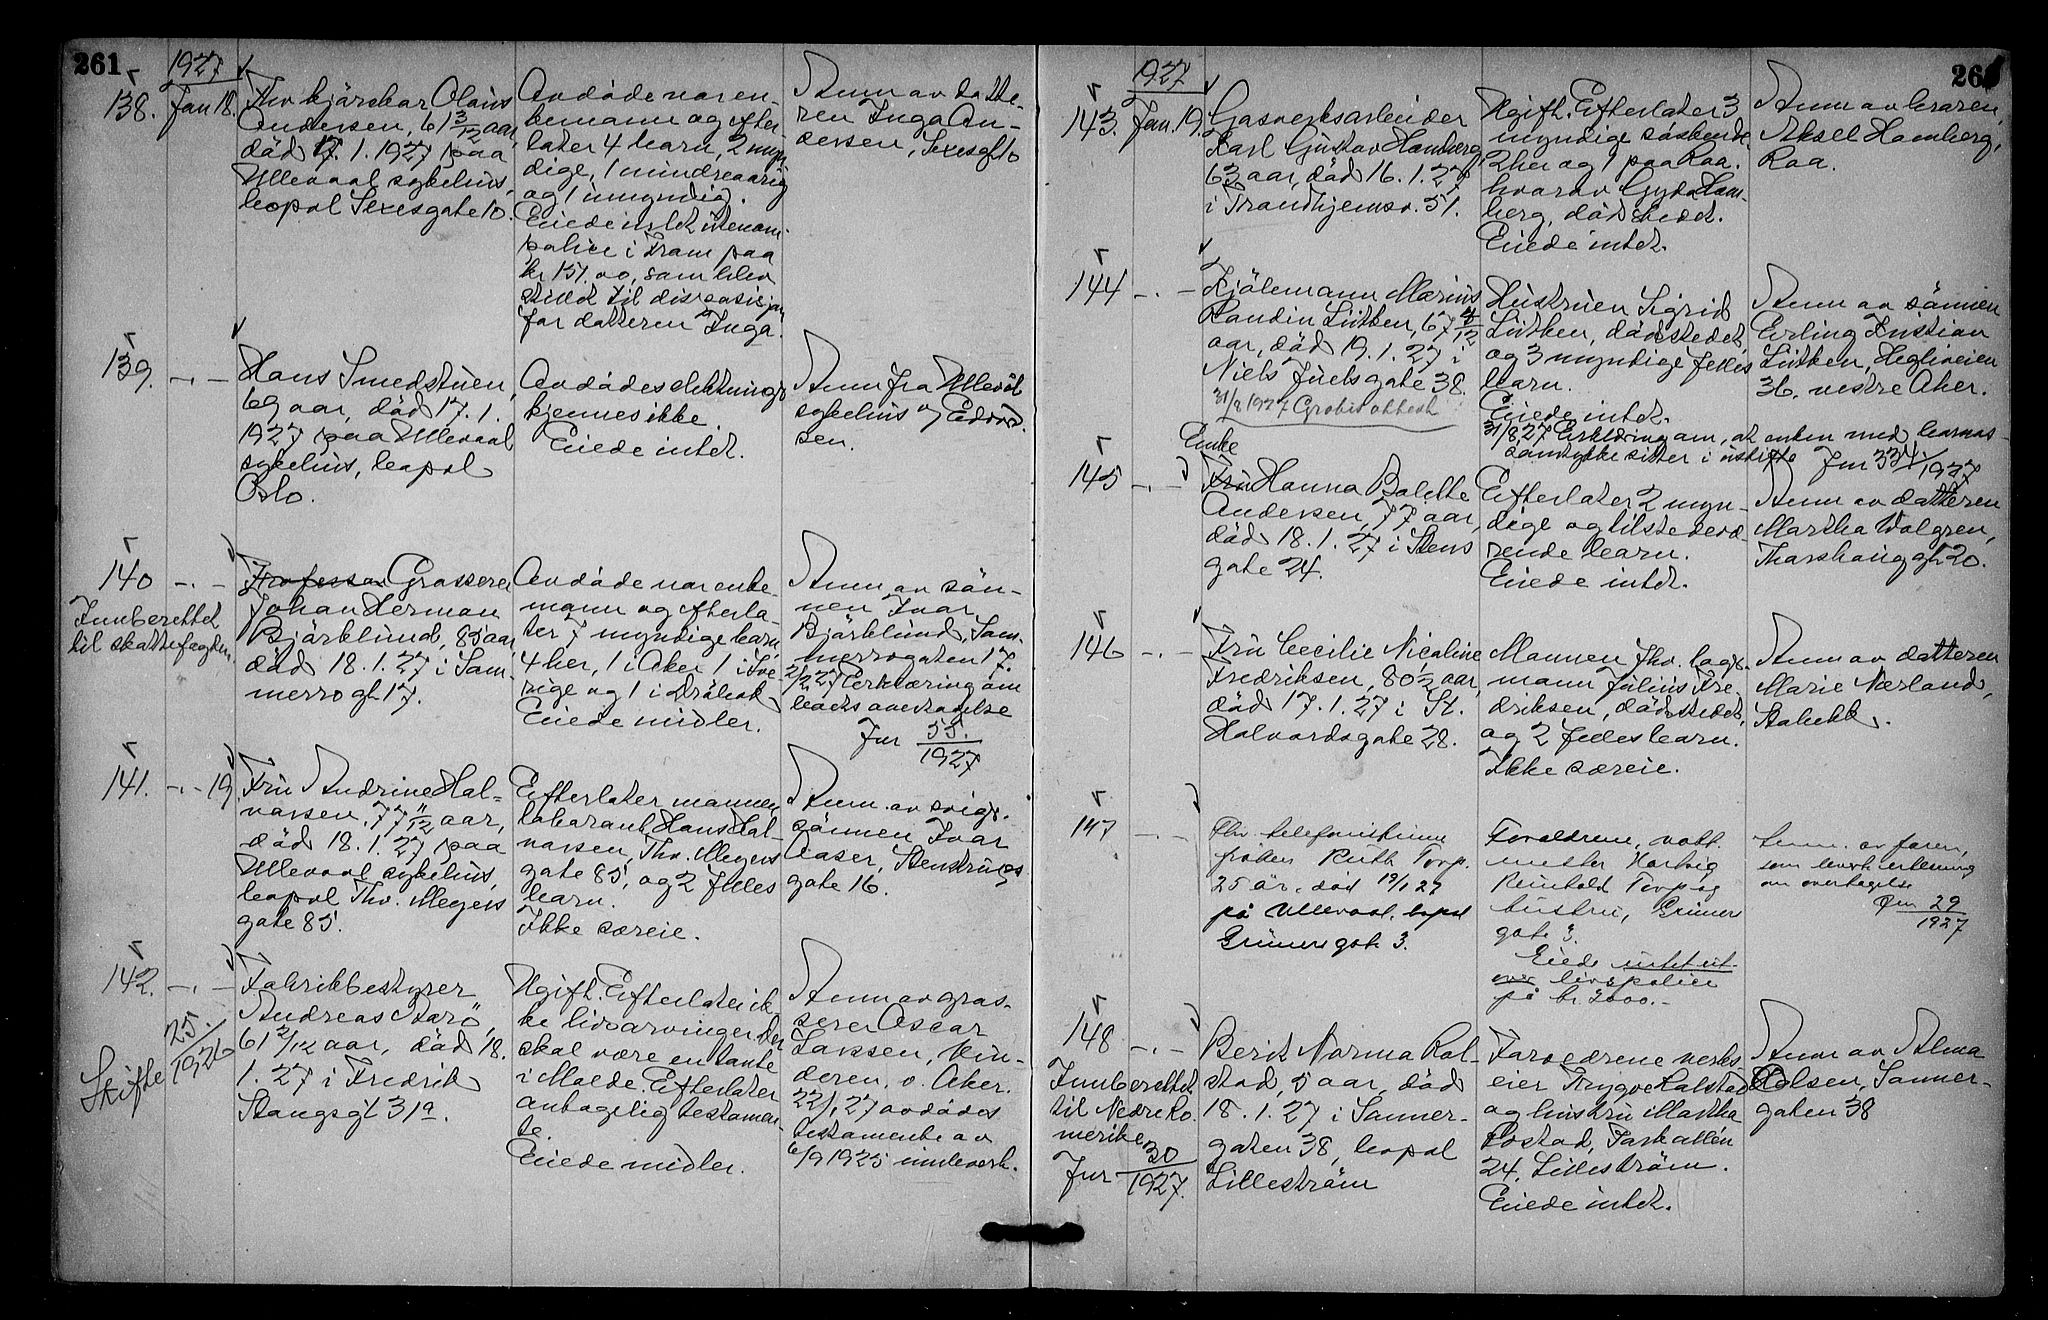 261
1927
138. Jan 18.
Fhv kjørekar Olaus
Andersen, 61 3/12 aar,
död 17.1.1927 paa
Ullevaal sykehus,
bopæl Sexesgate 10.
Avdöde var en-
kemann og efter-
later 4 barn, 2 myn
dige, 1 mindreaarig
og 1 umyndig.
Eiede intet utenom
police i Fram paa
kr 151.00, som blev
stillet til disposisjon
for datteren Inga.
Anm av datte-
ren Inga An-
dersen, Sexesgt 10
139. -.-
Hans Smedstuen,
69 aar, död 17.1.
1927 paa Ullevaal
sykehus, bopæl
Oslo.
Avdödes slektninge
kjennes ikke.
Eiede intet.
Anm fra Ullevål
sykehus v/ Edvard
sen.
140 -.-
Innberettet
til skattefogden.
Professor Grosserer
Johan Herman
Björklund, 85 aar,
död 18.1.27 i Som-
merrogt 17.
Avdöde var enke-
mann og efterla-
ter 7 myndige barn
4 her, 1 i Aker 1 i Sve
rige og 1 i Dröbak
Eiede midler.
Anm av sön-
nen Ivar
Björklund, Som-
merrogaten 17.
2/2 27 Erklæring om
boets overtagelse
Jnr 55./1927
141. -.- 19
Fru Andrine Hal-
vorsen, 77 11/12 aar,
död 18.1.27 paa
Ullevaal sykehus,
bopæl Thv. Meyers
gate 85.
Efterlater mannen
laborant Hans Hal-
vorsen, Thv. Meyers
gate 85, og 2 felles
barn.
Ikke særeie.
Anm. av svige.
sönnen Ivar
Aaser, Stenstrups
gate 16.
142. -.-
Skifte 25./1926
Fabrikkbestyrer
Andreas Aarö,
61 2/12 aar, död 18.
1.27 i Fredrik
Stangsgt 31a.
Ugift. Efterlater ik
ke livsarvinger. Der
skal være en tante
i Molde. Efterlater
antagelig testamen-
te.
Eiede midler.
Anm av gros-
serer Oscar
Larssen, Vin-
deren, v. Aker.
22/1 27 avdödes
testamente av
6/9 1925 innlevert.
1927
143. Jan. 19.
Gasverksarbeider
Karl Gustav Hamberg
63 aar, död 16.1.27
i Trondhjemsv. 51.
Ugift. Efterlater 3
myndige søskende
2 her og 1 paa Roa.
hvorav Gyda Ham-
berg, dödstedet.
Eiede intet.
Anm av broren,
Aksel Hamberg,
Roa.
144 -.-
Kjölemann Marius
Randin Lütken, 67 4/12
aar, död 19.1.27 i
Niels Juels gate 38.
31/8 1927 Grobis attest
Hustruen Sigrid
Lütken, dödstedet,
og 3 myndige felles
barn.
Eiede intet.
31/8 27 Erklæring om, at enken med barnas
samtykke sitter i uskifte Jnr 334/1927
Anm av sönnen
Erling Kristian
Lütken, Heggliveien
36, vestre Aker.
145 -.-
Enke
Fru Hanna Bolette
Andersen, 77 aar,
död 18.1.27 i Stens
gate 24.
Efterlater 2 myn-
dige og tilstedevæ-
rende barn.
Eiede intet.
Anm av datteren
Martha Walgren,
Thorshauggt 20.
146 -.-
Fru Cecilie Nicoline
Fredriksen, 80 1/2 aar,
död 17.1.27 i St.
Halvardsgate 28.
Mannen fhv. lager
mann Julius Fre-
driksen, dödstedet,
og 2 felles barn.
Ikke særeie.
Anm av datteren
Marie Nærland,
Stabekk.
147 -.-
Fhv. telefonistinne
frøken Ruth Torp.
25 år. död 19/1 27
på Ullevaal. bopæl
Grünersgate 3.
Foreldrene, vakt
mester Hartvig
Reinhold Torp og
hustru, Grüners
gate 3.
Eiede intet ut-
over livspolice
på kr. 2000.-
Anm. av faren,
som leverte erklæring
om overtagelse
Jnr 29/1927
148 -.-
Innberettet
til Nedre Ro.
merike
Jnr 30/1927.
Berit Norma Rol-
stad, 5 aar, död
18.1.27 i Sanner-
gaten 38, bopæl
Lilleström
Foreldrene verks-
eier Trygve Rolstad
og hustru Martha
Rostad, Parkalleen
24, Lilleström.
Eiede intet.
Anm av Alma
Olsen, Sanner-
gaten 38